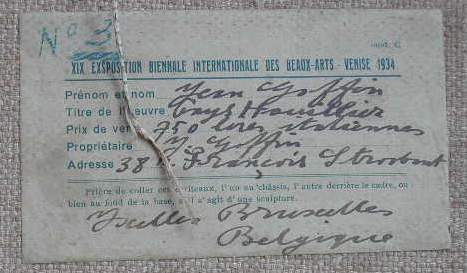 No 3
mod. C
XIX EXSPOSITION BIENNALE INTERNATIONALE DES BEAUX-ARTS - VENISE 1934
Prénom et nom Jean Goffin
Titre de l'œuvre Pays Houillier
Prix de vente 750 lires italiennes
Propriétaire J. Goffin
Adresse 38 r. François Stroobant
Prière de coller ces écriteaux, l'un au châssis, l'autre derrière le cadre, ou
bien au fond de la base, s'il s'agit d'une sculpture.
Ixelles Bruxelles
Belgique